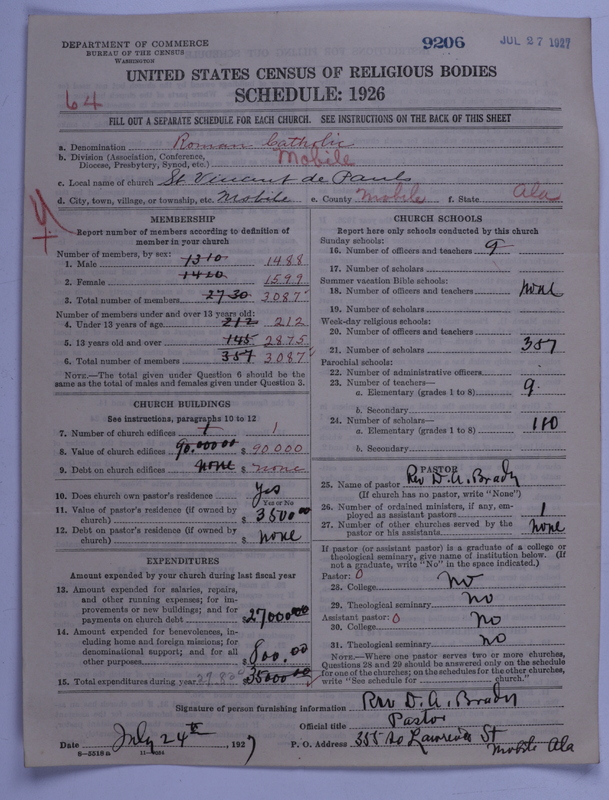 DEPARTMENT OF COMMERCE
BUREAU OF THE CENSUS
WASHINGTON
9206
JUL 27 1927
UNITED STATES CENSUS OF RELIGIOUS BODIES
SCHEDULE: 1926
64
FILL OUT A SEPARATE SCHEDULE FOR EACH CHURCH. SEE INSTRUCTIONS ON THE BACK OF THIS SHEET
a. Denomination Roman Catholic
b. Division (Association, Conference, Diocese, Presbytery, Synod, etc.) Mobile
c. Local name of church St Vincent de Pauls
d. City, town, village, or township, etc. Mobile e. County Mobile f. State Ala
MEMBERSHIP
Report number of members according to definition of
member in your church
Number of members, by sex:
1. Male 1310 1488
2. Female 1420 1599
3. Total number of members 2730 3087
Number of members under and over 13 years old:
4. Under 13 years of age 212 212
5. 13 years old and over 145 2875
6. Total number of members 357 3087
NOTE.—The total given under Question 6 should be the
same as the total of males and females given under Question 3.
CHURCH BUILDINGS
See instructions, paragraphs 10 to 12
7. Number of church edifices 1 1
8. Value of church edifices 90.000.00 $ 90000
9. Debt on church edifices none $ none
10. Does church own pastor's residence Yes
Yes or No
11. Value of pastor's residence (if owned by
church) $ 3500.00
12. Debt on pastor's residence (if owned by
church) $ none
EXPENDITURES
Amount expended by your church during last fiscal year
13. Amount expended for salaries, repairs,
and other running expenses; for im-
provements or new buildings; and for
payments on church debt $ 27000.00
14. Amount expended for benevolences, in-
cluding home and foreign missions; for
denominational support; and for all
other purposes $ 800.00
15. Total expenditures during year $ 35000.00
CHURCH SCHOOLS
Report here only schools conducted by this church
Sunday schools:
16. Number of officers and teachers 9
17. Number of scholars
Summer vacation Bible schools:
18. Number of officers and teachers none
19. Number of scholars
Week-day religious schools:
20. Number of officers and teachers
21. Number of scholars 357
Parochial schools:
22. Number of administrative officers
23. Number of teachers—
a. Elementary (grades 1 to 8) 9.
b. Secondary
24. Number of scholars—
a. Elementary (grades 1 to 8)
b. Secondary
PASTOR
25. Name of pastor Rev D. A. Brady
(If church has no pastor, write "None")
26. Number of ordained ministers, if any, em-
ployed as assistant pastors 1
27. Number of other churches served by the
pastor or his assistants none
If pastor (or assistant pastor) is a graduate of a college or
theological seminary, give name of institution below. (If
not a graduate, write "No" in the space indicated.)
Pastor: 0
28. College No
29. Theological seminary No
Assistant pastor: 0
30. College No
31. Theological seminary No
NOTE.—Where one pastor serves two or more churches,
Questions 28 and 29 should be answered only on the schedule
for one of the churches; on the schedules for the other churches,
write "See schedule for church."
Signature of person furnishing information Rev D. A. Brady
Official title Pastor
Date July 24th, 1927 P. O. Address 355 So Lawrence St
Mobile Ala
8—5518a